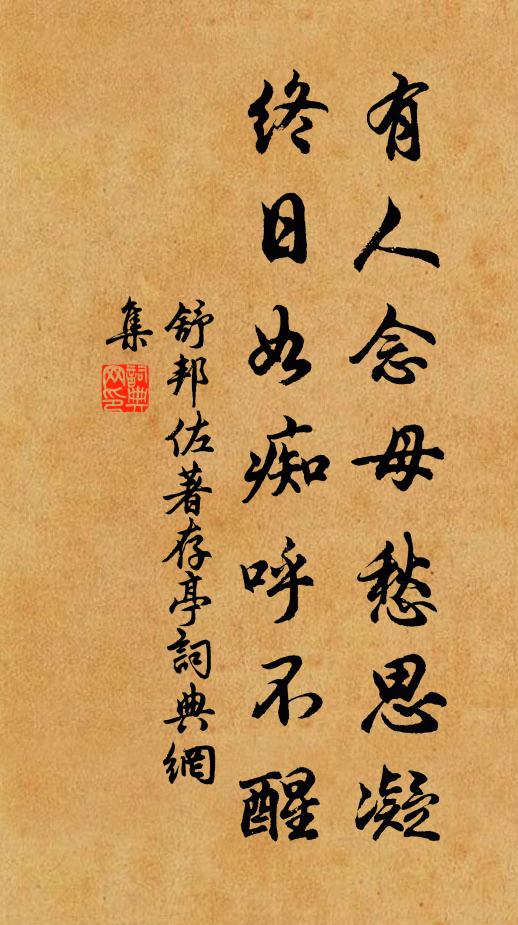 有人念母愁思凝
终日如痴呼不醒
舒邦佐著存亭詞典網
集
詞典
网印